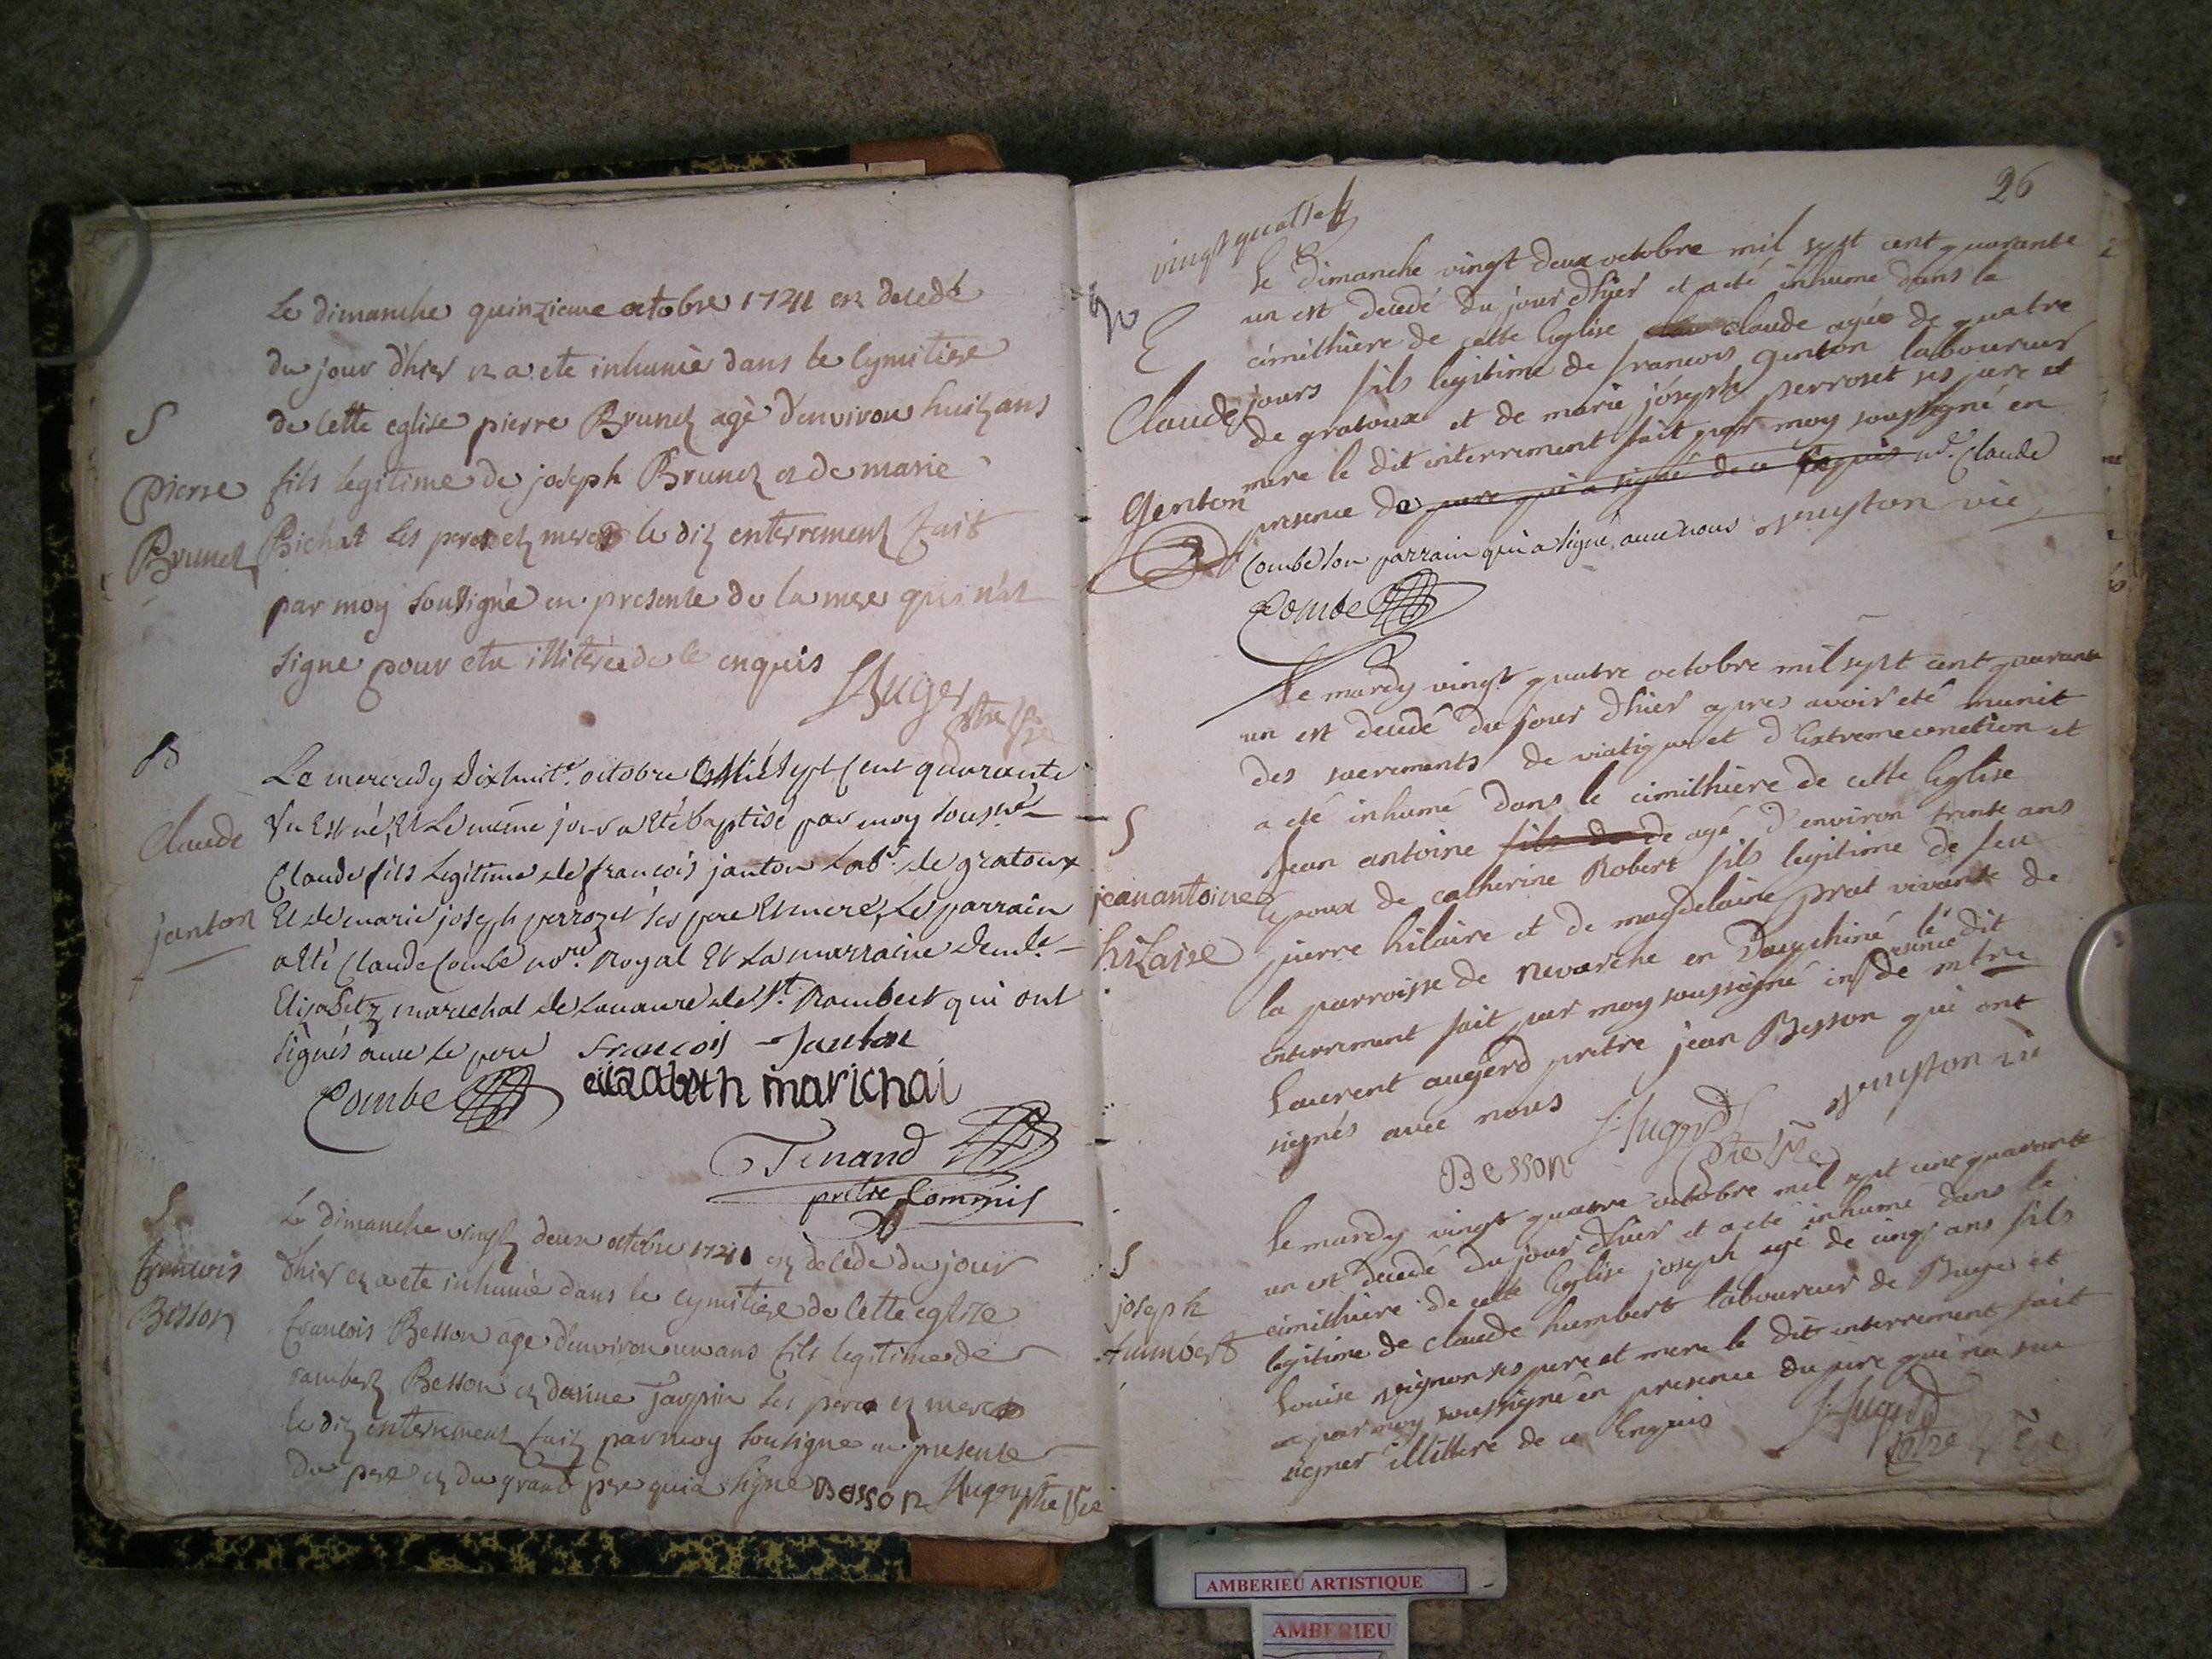 Le dimanche quinzieme octobre 1741 est decedé
du jour d'hier et a ete inhumé dans le Cymitiere
de cette eglise pierre Brunet agè d'environ huit ans
fils legitime de joseph Brunet et de marie
Bichat ses pere et mere le dit enterrement fait
par moy soussigné en presence de la mere qui n'at
signe pour etre illiterée de ce enquis
S
pierre
Brunet
B
Claude
janton
Le mercredy dixhuit.e octobre mil sept Cent quarante
Un Est né, Et Le même jour a Eté baptisé par moy souss.né
Claude fils Legitime de francois janton Lab.r de gratoux
Et de marie joseph perrozet ses pere Et mere, Le parrain
a Eté Claude Combe no.re Royal Et La marraine dem.le
Elisabetz marechal de de S.t Rambert qui ont
signés avec Le pere francois Janton
Combe elizabeth marichal
Tenand
prêtre Commis
S
francois
Besson
Le dimanche vingt deux octobre 1741 est decede du jour
d'hier et a ete inhumè dans le cymitiere de cette eglise
francois Besson age d'environ un ans fils legitime de
rambert Besson et ses pere et mere
le dit enterrement fait par moy sousigne en presence
du pere et du grand pere qui a signe Besson
26
vingt quatre
Le dimanche vingt deux octobre mil sept cent quarante
un est decedé du jour d'hier et a eté inhumé dans le
cimithière de cette Eglise claude agée de quatre
jours fils legitime de francois genton laboureur
de gratoux et de marie joseph perroset ses pere et
mere le dit interrement fait par moy soussigné en
presence de pere qui a signé de ce enquis Claude
Combe son parrain qui a signé avec nous
Combe
Claude
Genton
Le mardy vingt quatre octobre mil sept cent quarante
un est decedé du jour d'hier apres avoir eté munit
des sacrements de viatique et d'Extreme onction et
a eté inhumé dans le cimithiere de cette Eglise
jean antoine fils de de agé d'environ trente ans
Epoux de catherine Robert fils legitime de feu
pierre hilaire et de magdelaine prat vivante de
la parroisse de nevarche en Dauphiné le dit
interrement fait par moy soussigné en presence de mtre
Laurent augerd prêtre jean Besson qui ont
signés avec nous
Besson
S
jean antoine
hilaire
Le mardy vingt quatre octobre mil sept cent quarante
un est decedé du jour d'hier et a eté inhumé dans le
cimithiere de cette Eglise joseph agé de cinq ans fils
legitime de claude humbert laboureur de Buges et
Louise ses pere et mere le dit interrement fait
par moy soussigné en presence du pere qui n'a sçu
signer illittere de ce Enquis
S
joseph
humbert
AMBERIEU ARTISTIQUE
AMBERIEU